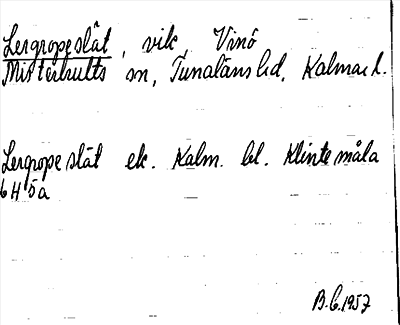 Lergropeslät, vik, Vinö
Misterhults sn, Tunaläns hd, Kalmar l.
Lergropeslät ek. Kalm. bl. Klintemåla
6H 5a
B.C. 1957